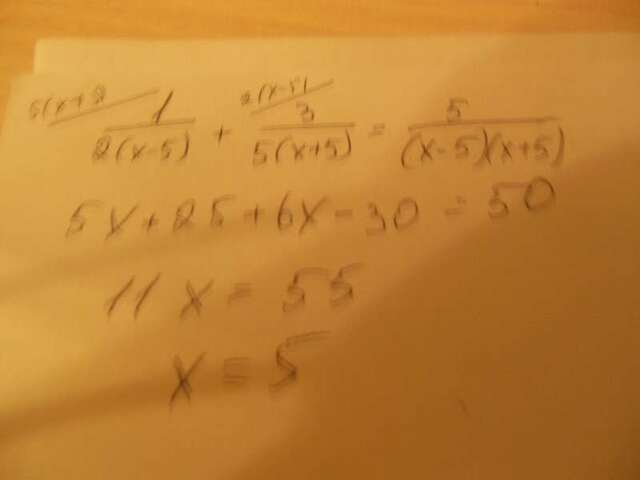 5(x+5 1/2(x-5) + 2(x-5) 3/5(x+5) = 5/(x-5)(x+5)
5x+25+6x-30=50
11x=55
x=5